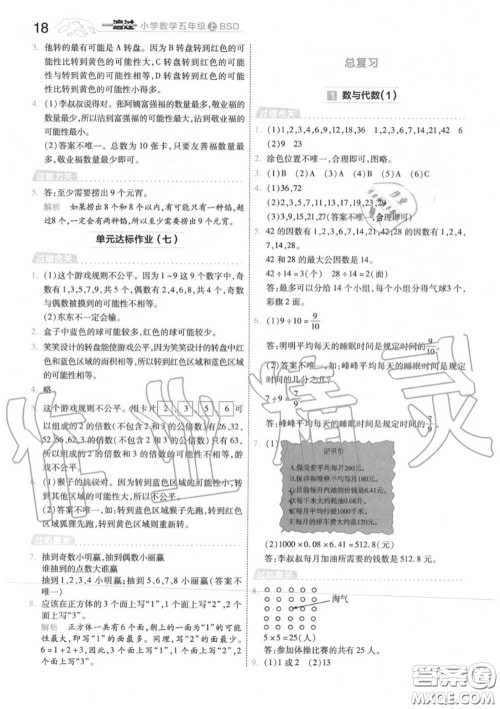 18
一遍过 小学数学五年级 上 BSD
3. 他转的最有可能是A转盘。因为B转盘转到红色的可能性比转到黄色的可能性大,C转盘转到红色的可能性比转到黄色的可能性小,D转盘转到红色与转到黄色的可能性相等。
4. (1)李叔叔说得对。张阿姨富强福的数量最多,敬业福的数量最少,所以沾到富强福的可能性最大,沾到敬业福的可能性最小。
(2)答案不唯一。总数为10张卡,只要友善福数量最多,敬业福数量最少即可。
5. 答:至少需要捞出9个元宵。
解析 如果捞出8个和8个以内,有可能有一种馅,超过8个,一定会有两种馅,所以至少需要捞出9个元宵。
单元达标作业(七)
1. (1)这个游戏规则不公平。因为1~9这9个数字中,奇数有1,3,5,7,9,共5个,偶数有2,4,6,8,共4个,奇数与偶数被摸到的可能性不相等。
(2)东东不一定会输。
2. 盒子中蓝色的球可能较多,红色的球可能较少。
3. 笑笑设计的转盘能体现公平。笑笑设计的转盘中红色区域和蓝色区域的面积相等,所以转到红色区域和蓝色区域的可能性相等。
4. 略
这个游戏规则不公平。用卡片 2 , 3 , 5 , 6 可
(2)答案不唯一。
抽到奇数小明赢,抽到偶数小丽赢
谁抽到的点数大谁赢
抽到1,2,3,4小明赢,抽到5,6小丽赢(答案不唯一)
应该在正方体的3个面上写“1”,2个面上写“2”,1个面上写“3”。
解析 正方体一共有6个面,朝上的一面为“1”的可能性最大,即写“1”的面最多。同理,写“2”的面第二多。6=1+2+3,因此3个面上写“1”,2个面上写“2”,1个面上写“3”。
总复习
1 数与代数(1)
1. (1)1,2,3,4,6,9,12,18,36 1,2,3,6,7,14,21,42 6
(2)9 23
2. 涂色位置不唯一,合理即可,图略。
3. (1)B (2)A (3)B (4)B (5)A (6)C
4. (1)36,72
(2)1,2,3,5,7,11,13,17,19,23,29
(3)3×7=21(答案不唯一,合理即可)
5. 42的因数有1,2,3,6,7,14,21,42,28的因数有1,2,4,7,14,28。
42和28的最大公因数是14。
42÷14=3(个) 28÷14=2(面)
答:最多可以给14个小组,每个小组分得气球3个,彩旗2面。
6. (1)9÷10=9/10
答:明明平均每天的睡眠时间是规定时间的9/10。
(2)答案不唯一,如:峰峰平均每天的睡眠时间是规定时间的几分之几?
答:峰峰平均每天的睡眠时间是规定时间的7/9。
7. (1)
A.保险费平均每月260元。
B.保养和维修平均每月180元。
C.目前每升汽油的价格是6.41元。
D.每千米大约耗油0.08升。
E.每月平均行驶1000千米。
F.每月的停车费大约是120元。
(2)1000×0.08×6.41=512.8(元)
答:李叔叔每月加油所需要的钱数是512.8元。
8.
淘气
5×5=25(名)
答:参加体操比赛的共有25人。
9. (1)1或2 (2)13
作业精灵
答案圈
MXQE.COM